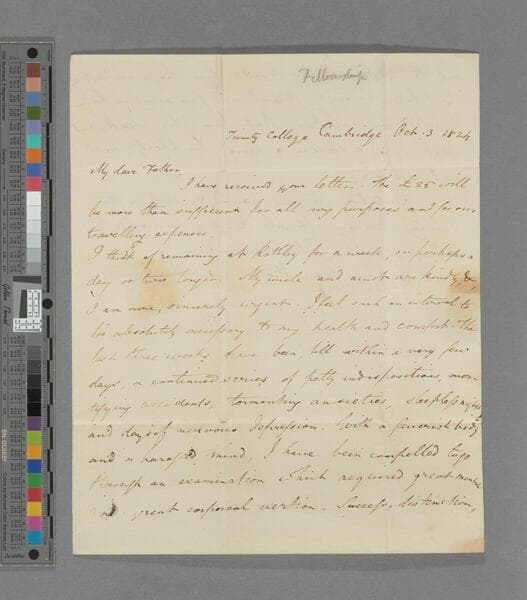 Fellowship
Trinity College Cambridge Oct. 3 1824
My dear Father,
I have received your letter. The £25 will
be more than sufficient for all my purposes and for our
travelling expenses.
I think of remaining at Rothley for a week, or perhaps a
day or two longer. My uncle and aunt are kindly, &
I am sure, sincerely urgent. I feel such an interval to
be absolutely necessary to my health and comfort. The
last three weeks have been, till within a very few
days, a continued series of petty indispositions, mor-
tifying accidents, tormenting anxieties, sleepless nights
and days of nervous depression. With a feverish body
and a harassed mind, I have been compelled to go
through an examination which required great mental
and great corporeal exertion. Success, distinction,